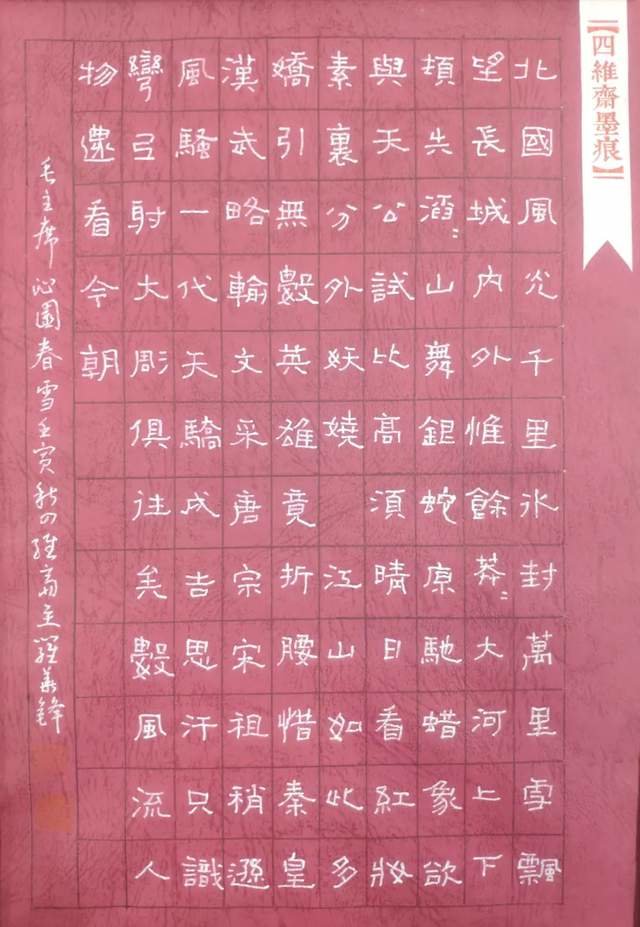 【四維齋墨痕】
北國風光千里氷封萬里雪飄
望長城內外惟餘莽=大河上下
頓失滔=山舞銀蛇原馳蜡象欲
與天公試比高須晴日看紅妝
素裹分外妖嬈 江山如此多
嬌引無數英雄竟折腰惜秦皇
漢武略輸文采唐宗宋祖稍遜
風騷一代天驕成吉思汗只識
彎弓射大彫俱往矣數風流人
物還看今朝
毛主席沁園春雪壬寅秋四維齋主羅華鋒